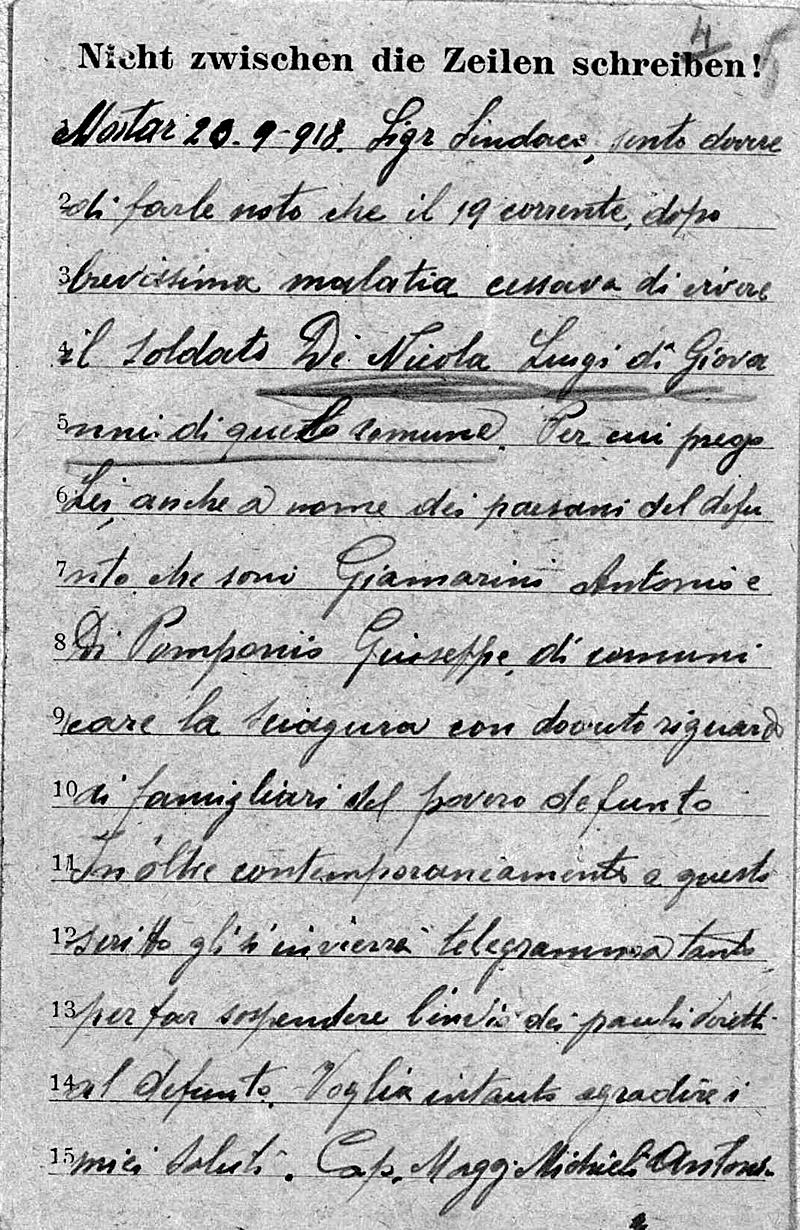 4 5
Nicht zwischen die Zeilen schreiben!
1 Mostar 20.9-918. Sigr Sindaco, sento dovere
2 di farle noto che il 19 corrente, dopo
3 brevissima malatia cessava di vivere
4 il soldato De Nicola Luigi di Giova
5 nni di questo comune. Per cui prego
6 Lei, anche a nome dei paesani del defu
7 nto che sono Giamarini Antonio e
8 Di Pomponio Giuseppe, di comuni
9 care la sciagura con dovuto riguardo
10 ai famigliari del povero defunto
11 In oltre contemporaneamente a questo
12 scritto gli si invierrà telegramma tanto
13 per far sospendere l'invio dei pachi diretti
14 al defunto. Voglia intanto agradire i
15 miei saluti. Cap. Magg. Michieli Antonio